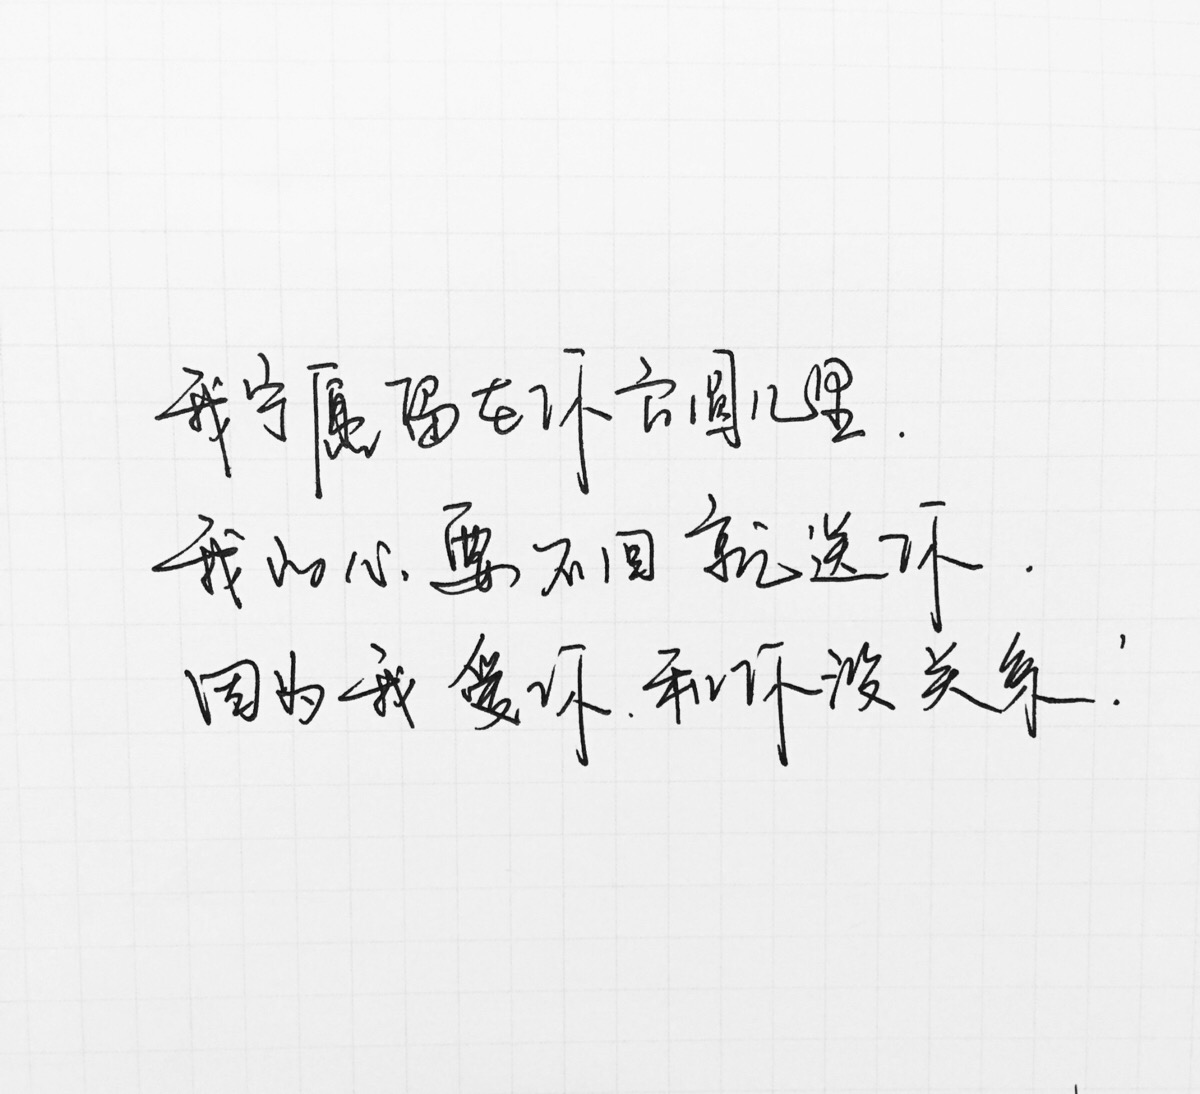 我宁愿留在你方圆几里.
我的心要不回就送你.
因为我爱你.和你没关系!